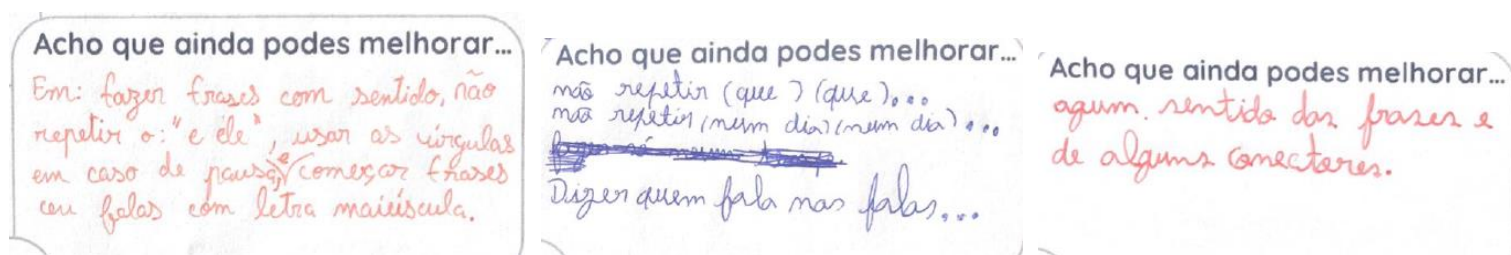 Acho que ainda podes melhorar...
Em: fazer frases com sentido, não
repetir o: "e ele", usar as vírgulas
em caso de pausa, e começar frases
ou falas com letra maiúscula.
Acho que ainda podes melhorar...
não repetir (que) (que)...
não repetir (num dia) (num dia)...
Dizer quem fala nas falas,...
Acho que ainda podes melhorar...
agum. sentido das frases e
de alguns conectores.